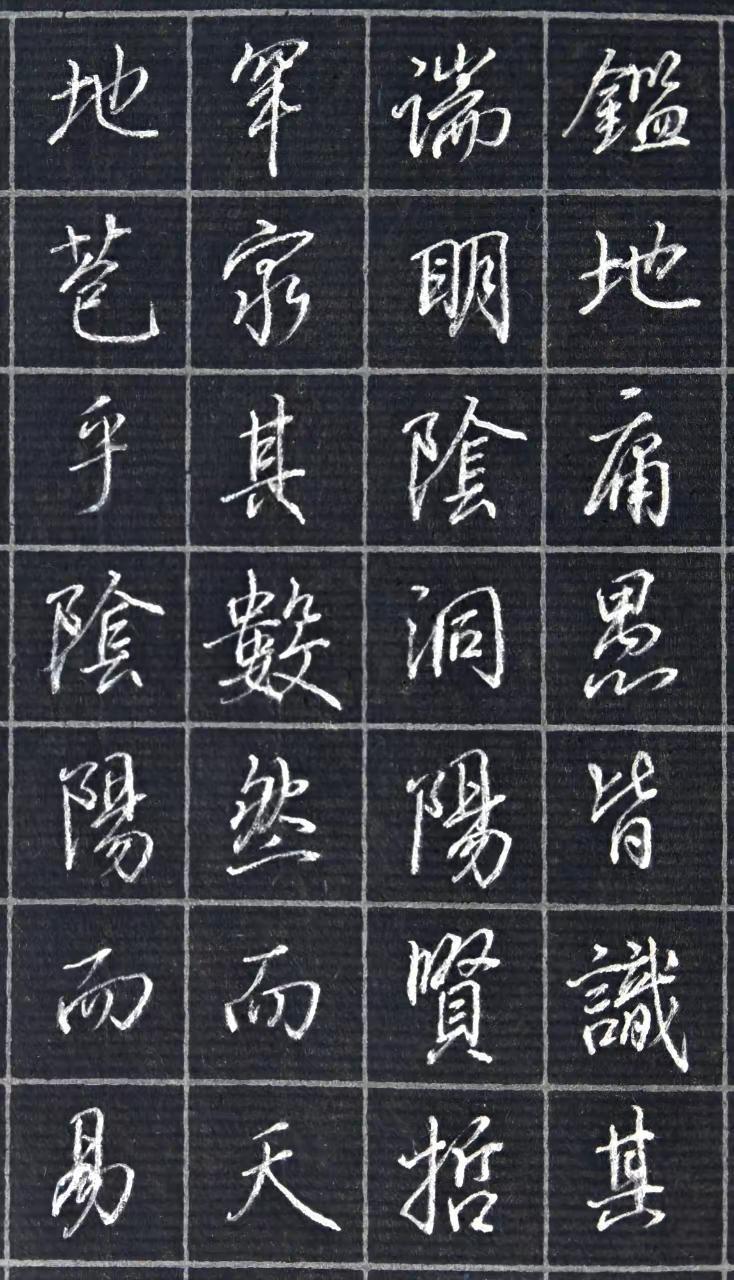 鑑地庸愚皆識其
端明陰洞陽賢哲
罕窮其數然而天
地苞乎陰陽而易